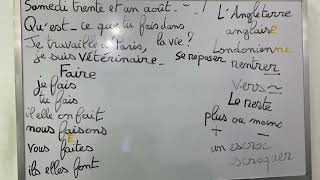 Samedi trente et un août - ~ !
Qu'est-ce que tu fais dans
la vie?
Je travaille à Paris,
je suis Vétérinaire.
Faire
je fais
tu fais
il elle on fait
nous faisons
E
vous faites
ils elles font
L'Angleterre
anglaise
Londonienne
se reposer
rentrer
Vers ~
Le reste
plus ou moins
+ -
un escroc
escroquer